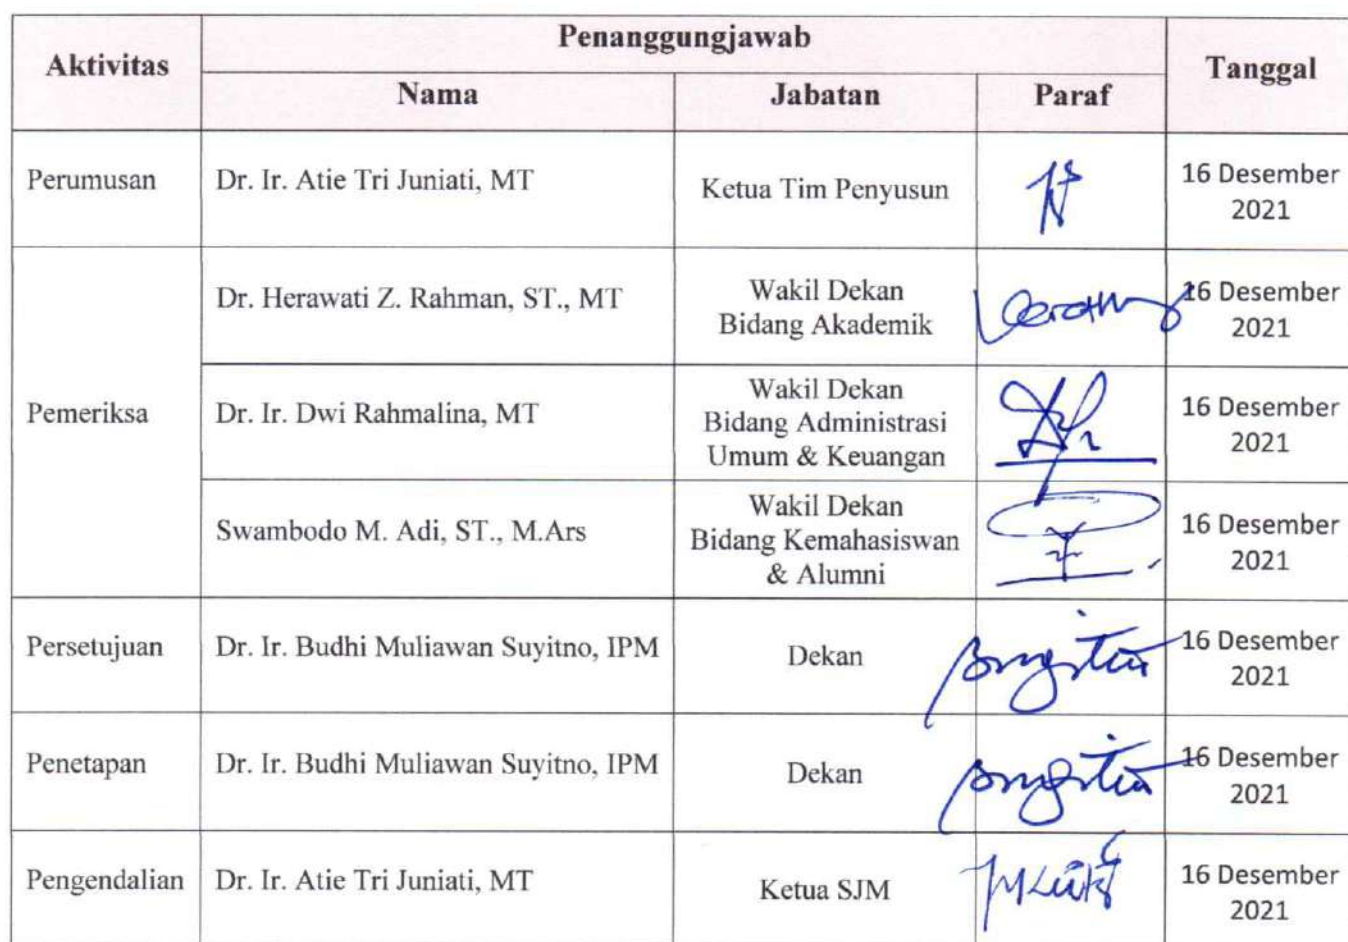 Aktivitas
Penanggungjawab
Tanggal
Nama
Jabatan
Paraf
Perumusan
Dr. Ir. Atie Tri Juniati, MT
Ketua Tim Penyusun
16 Desember
2021
Pemeriksa
Dr. Herawati Z. Rahman, ST., MT
Wakil Dekan
Bidang Akademik
16 Desember
2021
Dr. Ir. Dwi Rahmalina, MT
Wakil Dekan
Bidang Administrasi
Umum & Keuangan
16 Desember
2021
Swambodo M. Adi, ST., M.Ars
Wakil Dekan
Bidang Kemahasiswan
& Alumni
16 Desember
2021
Persetujuan
Dr. Ir. Budhi Muliawan Suyitno, IPM
Dekan
16 Desember
2021
Penetapan
Dr. Ir. Budhi Muliawan Suyitno, IPM
Dekan
16 Desember
2021
Pengendalian
Dr. Ir. Atie Tri Juniati, MT
Ketua SJM
16 Desember
2021